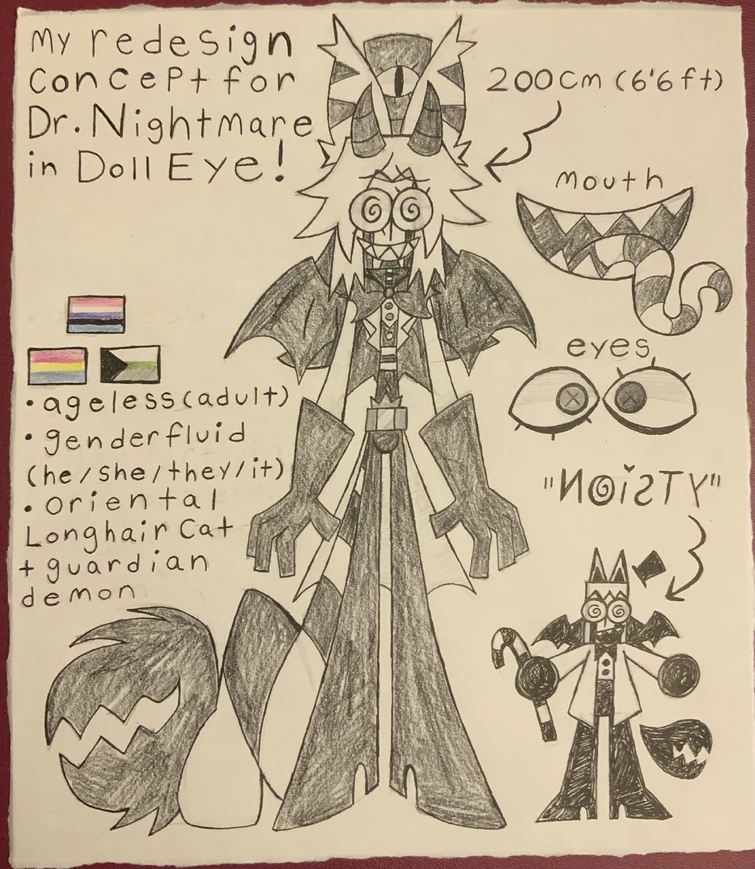 My redesign
Concept for
Dr. Nightmare
in Doll Eye!
200cm (6'6ft)
mouth
eyes
• ageless (adult)
• genderfluid
(he/she/they/it)
• oriental
Longhair Cat
+ guardian
demon
"ИOiƧTY"